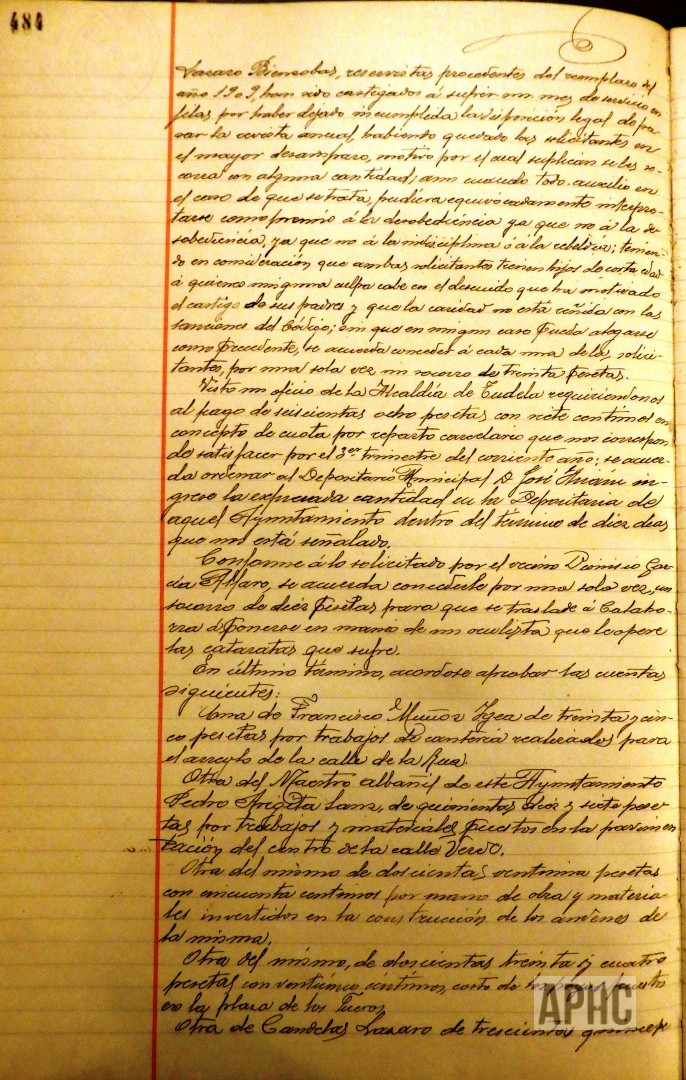 484
Lazaro Bienzobas, reservistas procedentes del reemplazo del
año 1909, han sido castigados á sufrir un mes de servicio en
filas por haber dejado incumplida la disposición legal de pa-
sar la revista anual, habiendo quedado las solicitantes en
el mayor desamparo, motivo por el cual suplican se les so-
corra con alguna cantidad; aun cuando todo auxilio en
el caso de que se trata, pudiera equivocadamente interpre-
tarse como premio á la desobediencia ya que no á la de-
sobediencia, ya que no á la indisciplina ó á la rebeldía; tenien-
do en consideración que ambas solicitantes tienen hijos de corta edad
á quienes ninguna culpa cabe en el descuido que ha motivado
el castigo de sus padres y que la caridad no está reñida con las
sanciones del Código; sin que en ningun caso pueda alegarse
como precedente, se acuerda conceder á cada una de las solici-
tantes, por una sola vez un socorro de treinta pesetas.
Visto un oficio de la Alcaldía de Tudela requiriendonos
al pago de seiscientas ocho pesetas con siete centimos en
concepto de cuota por reparto carcelario que nos correspon-
de satisfacer por el 3er trimestre del corriente año; se acuer-
da ordenar al Depositario Municipal D. José
ingrese la expresada cantidad en la Depositaria de
aquel Ayuntamiento dentro del termino de diez dias
que nos está señalado.
Conforme á lo solicitado por el vecino Dionisio Gar-
cia Alfaro, se acuerda concederle por una sola vez, un
socorro de diez pesetas para que se traslade á Calaho-
rra á ponerse en manos de un oculista que le opere
las cataratas que sufre.
En último término, acordose aprobar las cuentas
siguientes:
Una de Francisco Muñoz Igea de treinta y cin-
co pesetas por trabajos de cantería realizados para
el arreglo de la calle de la Rua.
Otra del Maestro albañil de este Ayuntamiento
Pedro Lanz, de quinientas diez y siete pese-
tas por trabajos y materiales puestos en la pavimen-
tación del centro de la calle Verdo.
Otra del mismo de doscientas veintiuna pesetas
con cincuenta centimos por mano de obra y materia-
les invertidos en la construcción de los andenes de
la misma.
Otra del mismo, de doscientas treinta y cuatro
pesetas con veinticinco céntimos, costo de puesto
en la plaza de los Fueros.
Otra de Candelas Lazaro de trescientas
APHC